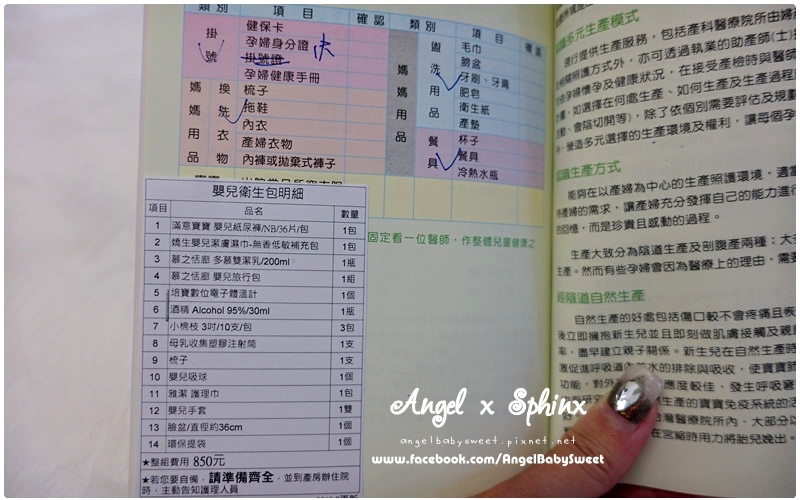 類別 項目 確認 類別 項目 確認
掛號
健保卡
孕婦身分證
掛號證
孕婦健康手冊
媽媽用品
換洗衣物
梳子
拖鞋
內衣
產婦衣物
內褲或拋棄式褲子
媽媽用品
盥洗用品
毛巾
臉盆
牙刷、牙膏
肥皂
衛生紙
產墊
餐具
杯子
餐具
冷熱水瓶
固定看一位醫師,作整體兒童健康之
嬰兒衛生包明細
項目 品名 數量
1 滿意寶寶 嬰兒紙尿褲/NB/36片/包 1包
2 嬌生嬰兒潔膚濕巾-無香低敏補充包 1包
3 慕之恬廊 多慕雙潔乳/200ml 1瓶
4 慕之恬廊 嬰兒旅行包 1組
5 培寶數位電子體溫計 1個
6 酒精 Alcohol 95%/30ml 1瓶
7 小棉枝 3吋/10支/包 3包
8 母乳收集塑膠注射筒 1支
9 梳子 1支
10 嬰兒吸球 1個
11 雅潔 護理巾 1包
12 嬰兒手套 1雙
13 臉盆/直徑約36cm 1個
14 環保提袋 1個
★整組費用 850元
★若您要自備,請準備齊全,並到產房辦住院
時,主動告知護理人員
多元生產模式
現行提供生產服務,包括產科醫療院所由婦
照護方式外,亦可透過執業的助產師(士)
婦懷孕及健康狀況,在接受產檢時與醫師
,如選擇在何處生產、如何生產及生產過程
、會陰切開等),除了依個別需要評估及規劃
營造多元選擇的生產環境及權利,讓每個孕
生產方式
能夠在以產婦為中心的生產照護環境,適當
產婦的需求,讓產婦充分發揮自己的能力進行
的回憶,而是珍貴且感動的過程。
生產大致分為陰道生產及剖腹產兩種;大多
生產。然而有些孕婦會因為醫療上的理由,需要
經陰道自然生產
自然生產的好處包括傷口較不會疼痛且恢
後立即擁抱新生兒並且即刻做肌膚接觸及親
率,盡早建立親子關係。新生兒在自然生產時
激促進呼吸道內 水的排除與吸收,使寶寶肺
功能,對外 應度較佳,發生呼吸窘
生產的寶寶免疫系統的活
灣醫療院所內,大部分以
在宮縮時用力將胎兒娩出。
Angel x Sphinx
angelbabysweet.pixnet.net
www.facebook.com/AngelBabySweet